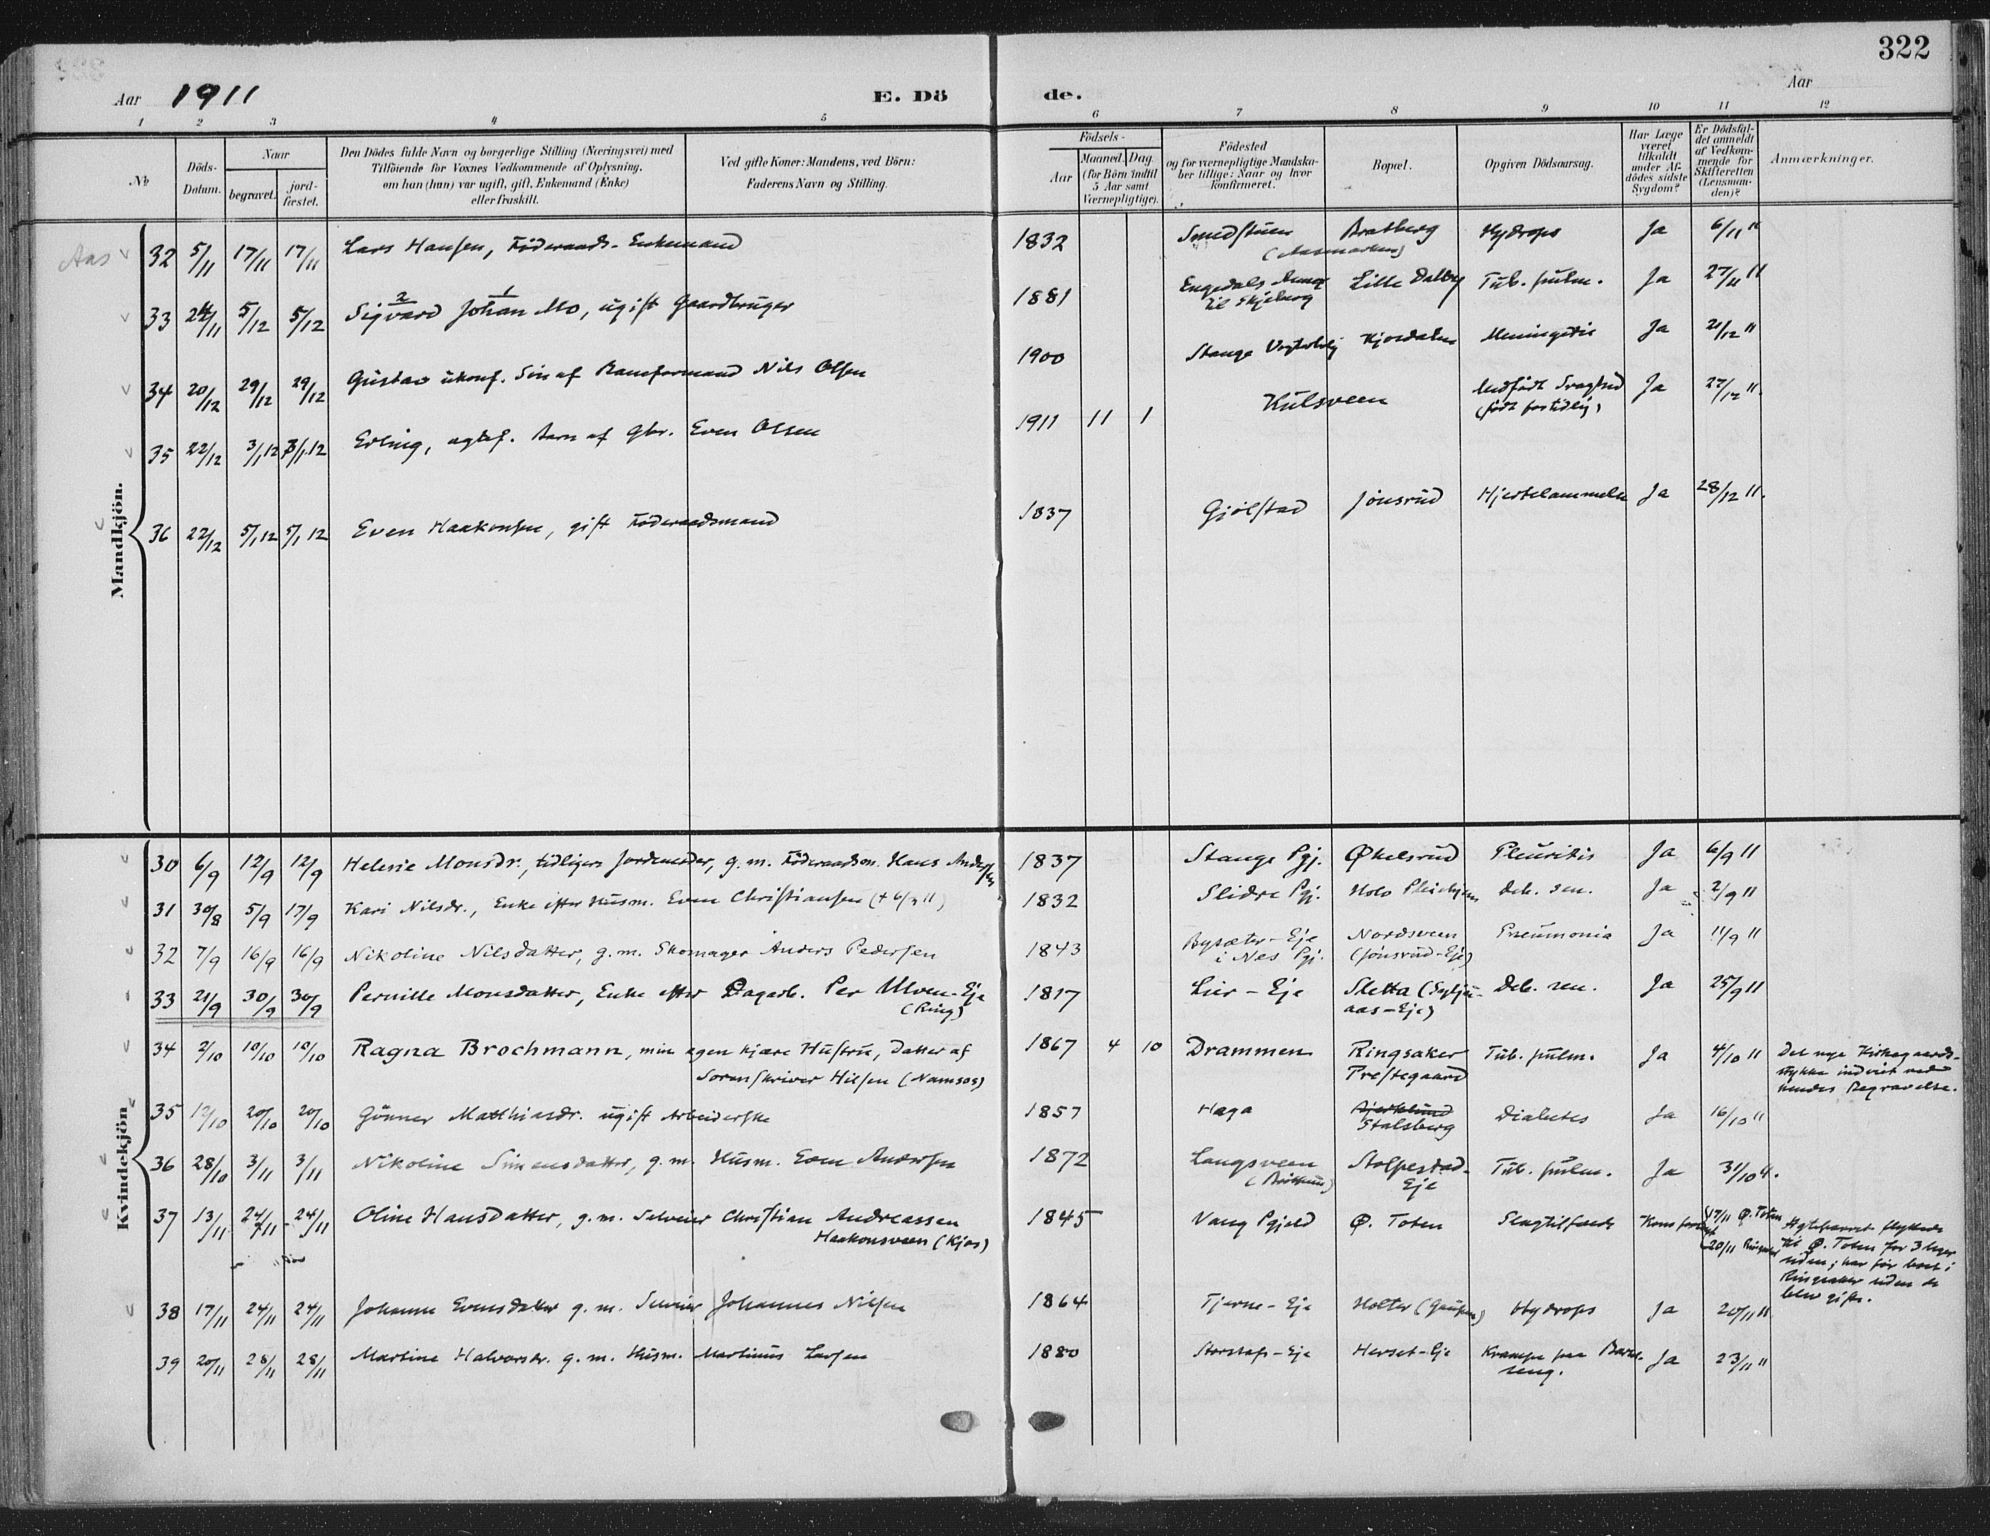 322
Aar 1911 E. Dö de. Aar
1 2 3 4 5 6 7 8 9 10 11 12
No
Döds-Datum.
Naar
begravet.
jord-fæstet.
Den Dödes fulde Navn og borgerlige Stilling (Næringsvei) med
Tilföiende for Voxnes Vedkommende af Oplysning,
om han (hun) var ugift, gift, Enkemand (Enke)
eller fraskilt.
Ved gifte Koner: Mandens, ved Börn:
Faderens Navn og Stilling.
Födsels-
Aar
Maaned. Dag
(for Börn indtil
5 Aar samt
Værnepligtige).
Födested
og for værnepligtige Mandska-
ber tillige: Naar og hvor
konfirmeret.
Bopæl.
Opgiven Dödsaarsag.
Har Læge
været
tilkaldt
under Af-
dödes sidste
Sygdom?
Er Dödsfal-
det anmeldt
af Vedkom-
mende for
Skifteretten
(Lensman-
den)?
Anmærkninger.
Mandkjön.
Aas 32 5/11 17/11 17/11 Lars Hansen, Föderaads-Enkemand 1832 Smedstuen Bratberg Hydrops Ja 6/11 11
(Aasmarken)
33 24/11 5/12 5/12 Sigvard Johan Mo, ugift Gaardbruger 1881 Lille Dalby Tub. pulm. Ja 27/11 11
2 1
34 20/12 29/12 29/12 Gustav ukonf. Sön af Baneformand Nils Olsen 1900 Stange Meningitis Ja 21/12 11
35 22/12 3/1 12 3/1 12 Erling, Barn af Gbr. Even Olsen 1911 11 1 Kulsveen Medfödt Svaghed Ja 27/12 11
(födt for tidlig)
36 22/12 5/1 12 5/1 12 Even Haakonsen, gift Föderaadsmand 1837 Gjölstad Jönsrud Hjertelammelse Ja 28/12 11.
Kvindekjön
30 6/9 12/9 12/9 Helene Monsdr., tidligere Jordemoder, g. m. Föderaadsm. Hans Andersen 1837 Stange Pgj. Økelsrud Pleuritis Ja 6/9 11
31 30/8 5/9 17/9 Kari Nilsdr., Enke efter Husm. Even Christiansen 1832 Slidre Pgj. Deb. sen. Ja 2/9 11
32 7/9 16/9 16/9 Nikoline Nilsdatter, g. m. Skomager Anders Pedersen 1843 Bysæter-Eje Nordsveen Pneumonia Ja 11/9 11
i Nes Pgj. (Jönsrud-Eje)
33 21/9 30/9 30/9 Pernille Monsdatter, Enke efter Dagarb. Per Ulven-Eje 1817 Lier-Eje Sletta Deb. sen. Ja 25/9 11
(Ring) aas-Eje)
34 2/10 10/10 10/10 Ragna Brochmann, min egen kjære Hustru, Datter af 1867 4 10 Drammen Ringsaker Tub. pulm. Ja 4/10 11 Det nye Kirkegaards-
Sorenskriver Nilsen (Namsos) Prestegaard stykke indviet ved
hendes Begravelse.
35 12/10 20/10 20/10 Gunner Matthiasdr. ugift Arbeiderske 1857 Haga Stalsberg Diabetes Ja 16/10 11
36 28/10 3/11 3/11 Nikoline Simensdatter, g. m. Husm. Even Andersen 1872 Langsveen Stolpestad- Tub. pulm. Ja 31/10 11.
Eje
37 13/11 24/11 24/11 Oline Hansdatter, g. m. Selveier Christian Andreassen 1845 Vang Pgjeld Ø. Toten Slagtilfælde 17/11 Ø. Toten Ægteparret flyttede
Haakonsveen (Kjos) 20/11 til Ø. Toten for 3 Uger
siden; har för boet i
Ringsaker siden de
blev gifte.
38 17/11 24/11 24/11 Johanne Evensdatter g. m. Selveier Johannes Nilsen 1864 Tjerne-Eje Holter Hydrops Ja 20/11 11
39 20/11 28/11 28/11 Martine Halvorsdr. g. m. Husm. Martinus Larsen 1880 Herset-Eje Krampe paa Barsel- Ja 23/11 11
seng.